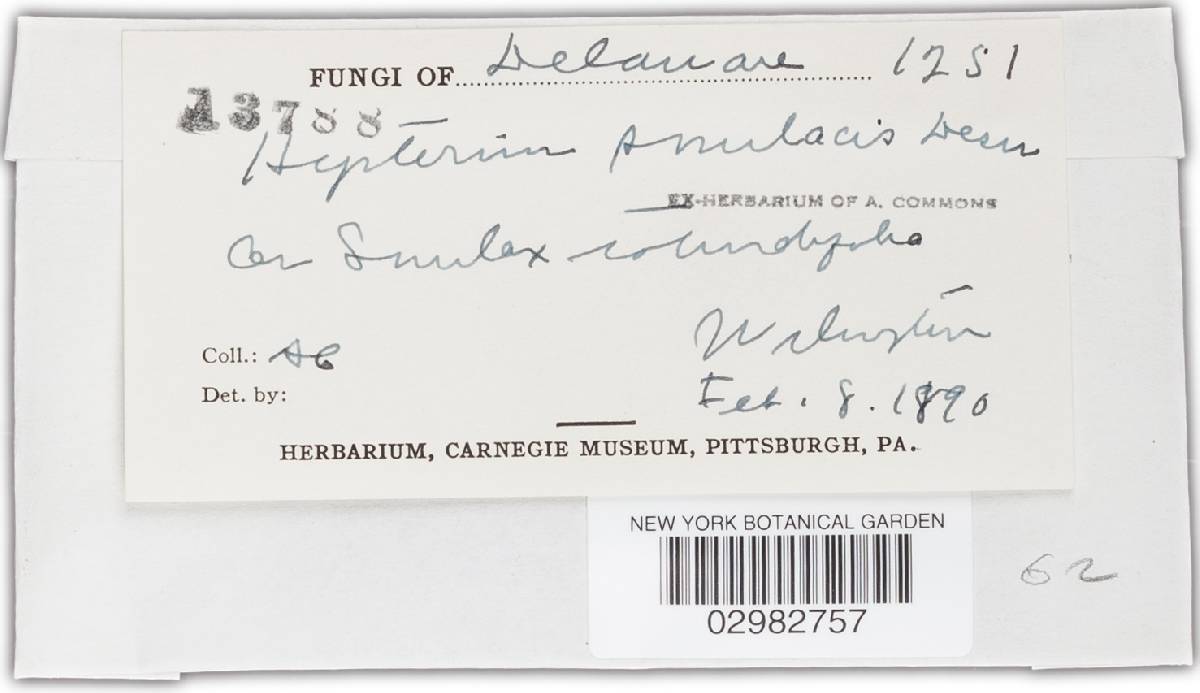 FUNGI OF Delaware 1251
A3788
Hypterium Smilacis Desm
EX-HERBARIUM OF A. COMMONS
On Smilax rotundifolia
Wilmington
Coll.: AC
Feb. 8. 1890
Det. by:
HERBARIUM, CARNEGIE MUSEUM, PITTSBURGH, PA.
NEW YORK BOTANICAL GARDEN
02982757
62